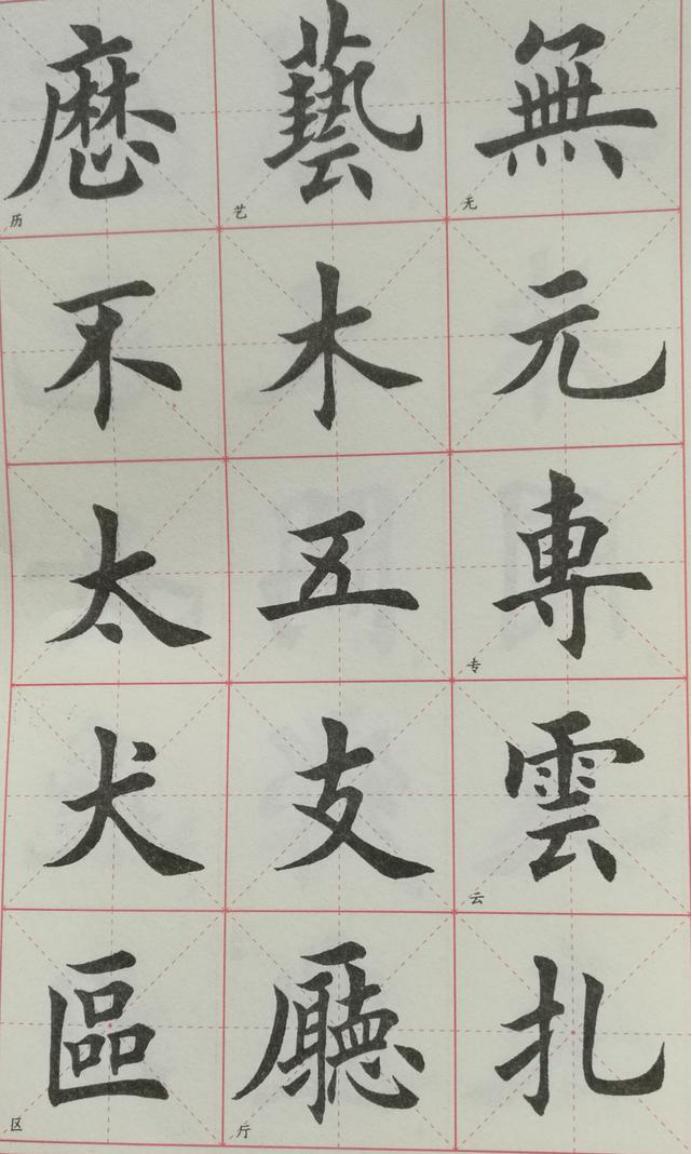 無 无
元
専 专
雲 云
扎
藝 艺
木
五
支
廳 厅
历
不
太
犬
區 区